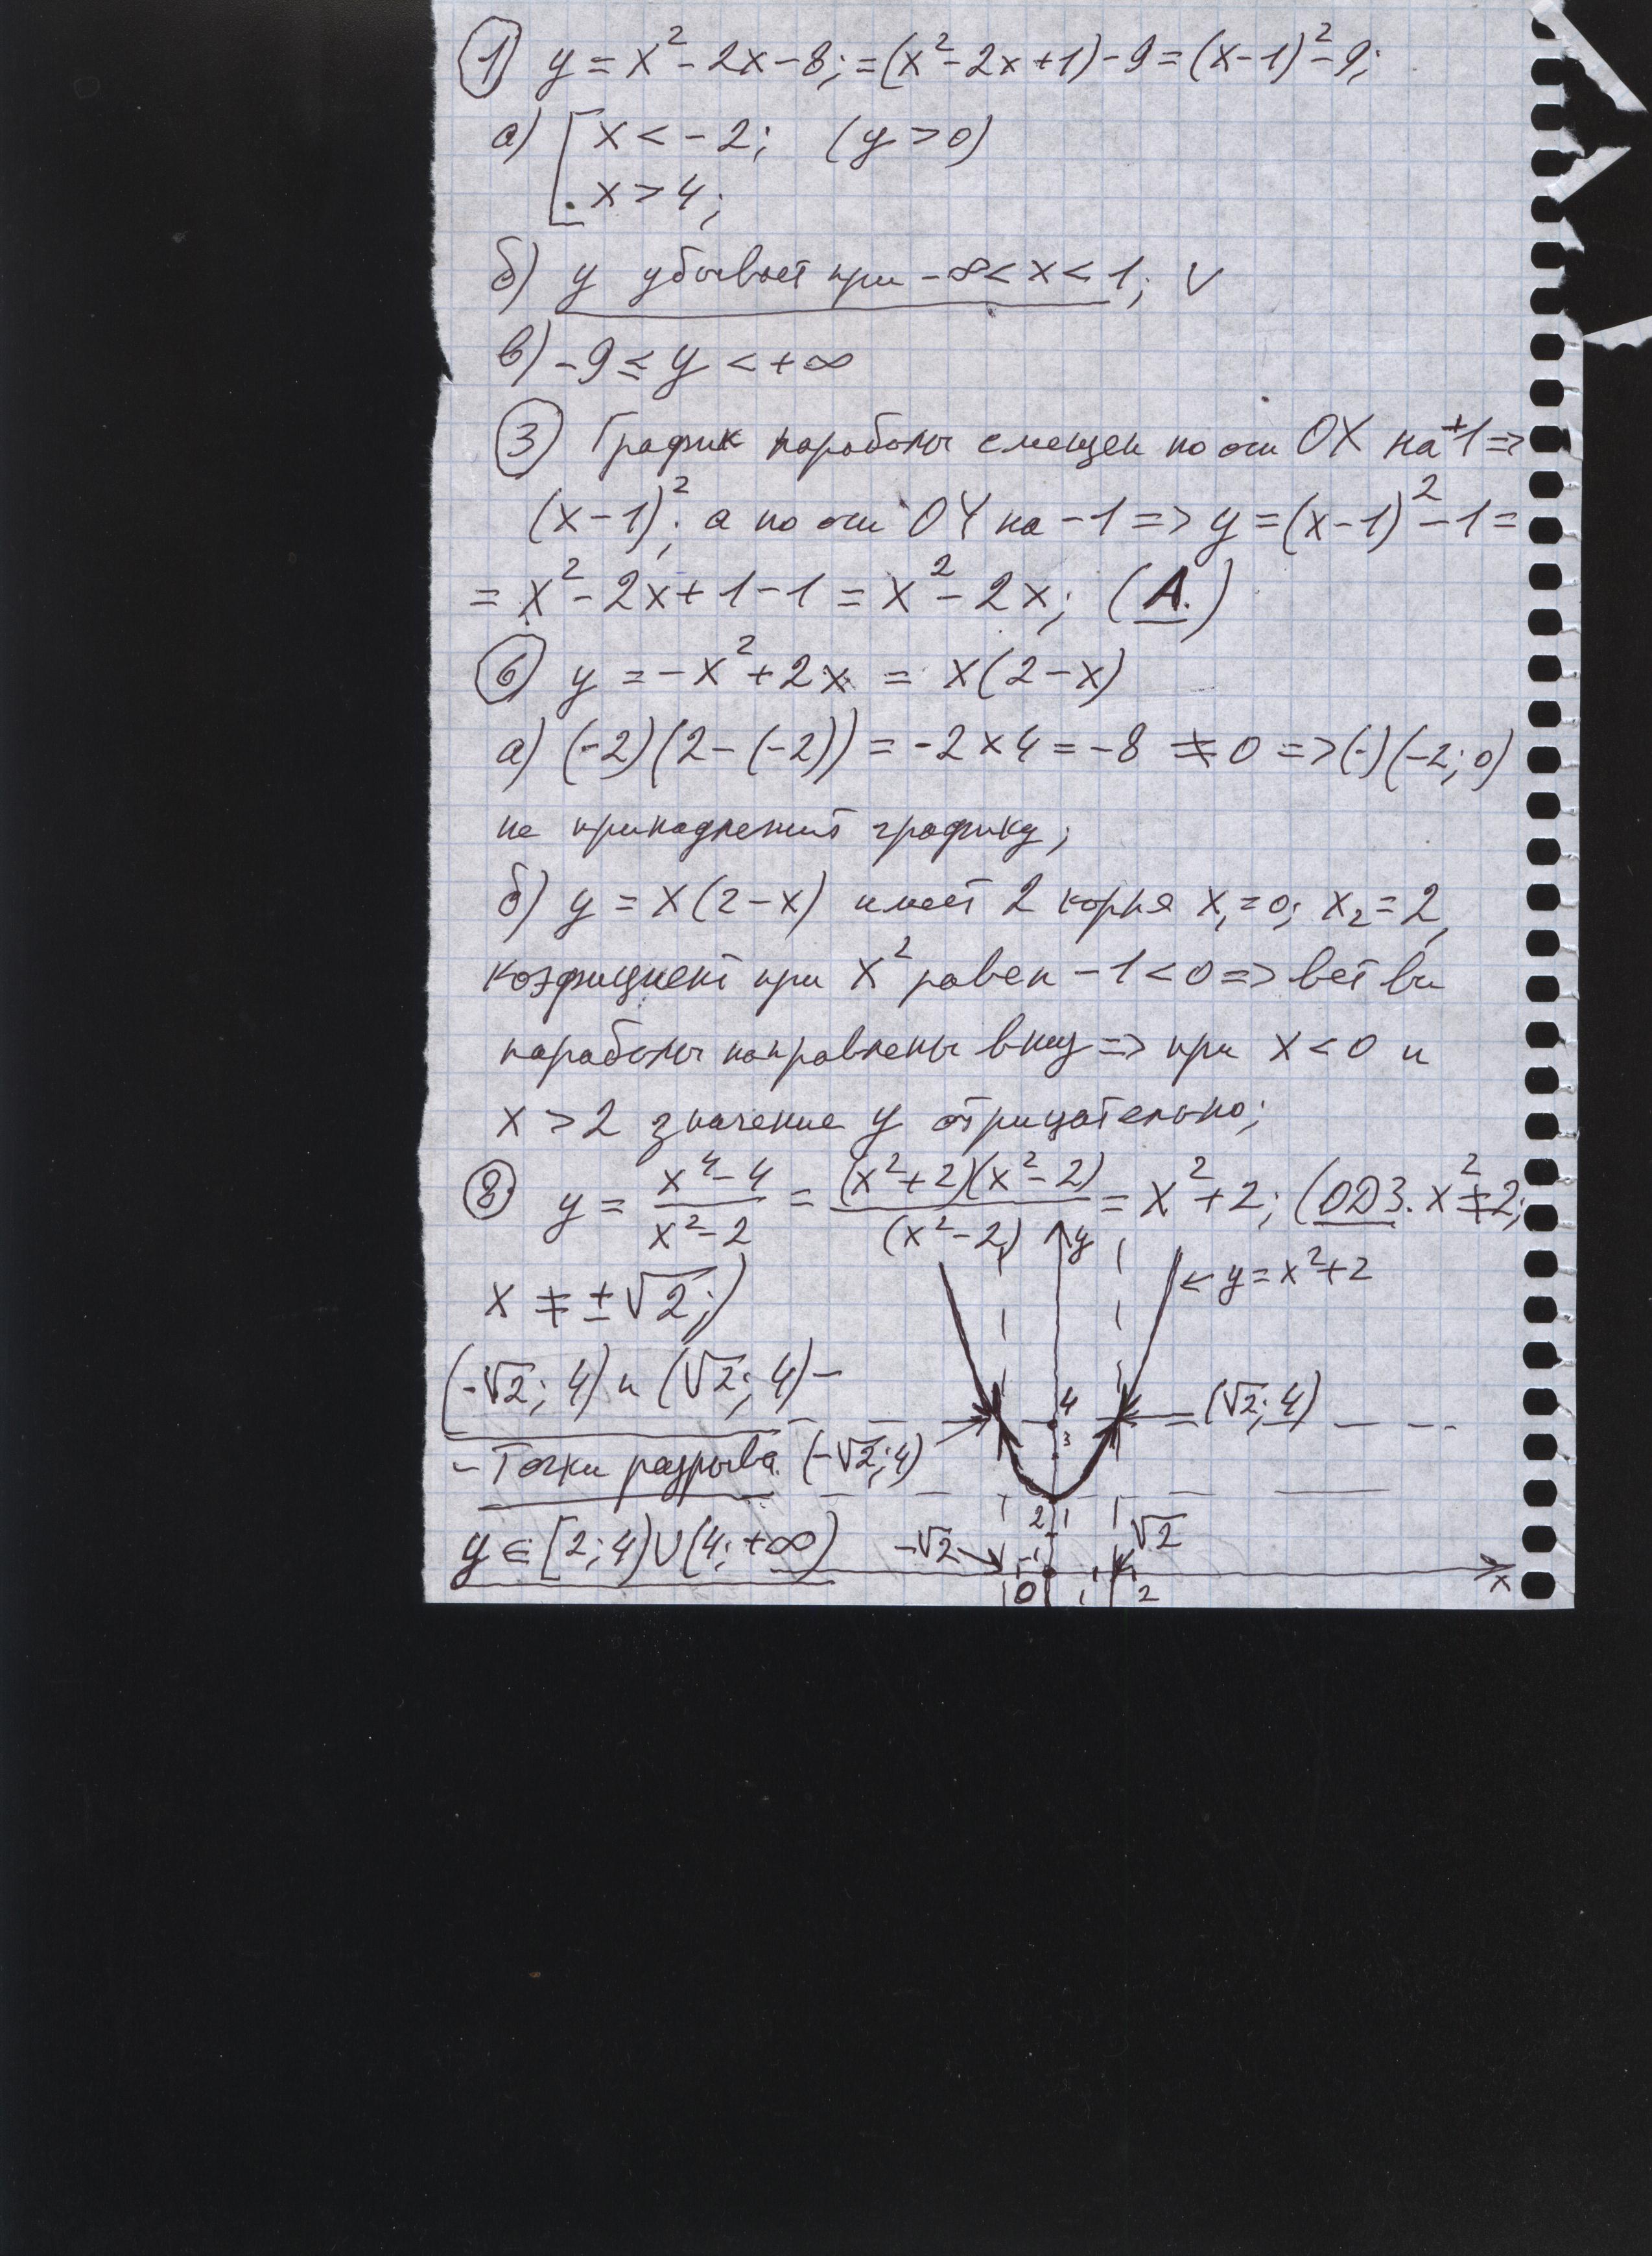 ① y = x² - 2x - 8; = (x² - 2x + 1) - 9 = (x - 1)² - 9;
а) [ x < -2; (y > 0)
x > 4;
б) y убывает при -∞ < x < 1; V
в) -9 ≤ y < +∞
③ График параболы смещен по оси OX на +1 =>
(x-1)²; а по оси OY на -1 => y = (x-1)² - 1 =
= x² - 2x + 1 - 1 = x² - 2x; (А.)
⑥ y = -x² + 2x = x(2-x)
а) (-2)(2-(-2)) = -2×4 = -8 ≠ 0 => (·)(-2; 0)
не принадлежит графику;
б) y = x(2-x) имеет 2 корня x₁=0; x₂=2,
коэфициент при x² равен -1 < 0 => ветви
параболы направлены вниз => при x < 0 и
x > 2 значение y отрицательно;
⑧ y = (x⁴-4)/(x²-2) = (x²+2)(x²-2)/(x²-2) = x²+2; (ОДЗ. x² ≠ 2;
x ≠ ±√2;)
y
y = x²+2
(-√2; 4) и (√2; 4) -
4
(√2; 4)
3
- Точки разрыва.
(-√2; 4)
2
1
y ∈ [2; 4) ∪ (4; +∞)
-√2
√2
-1
1
x
0
1
2